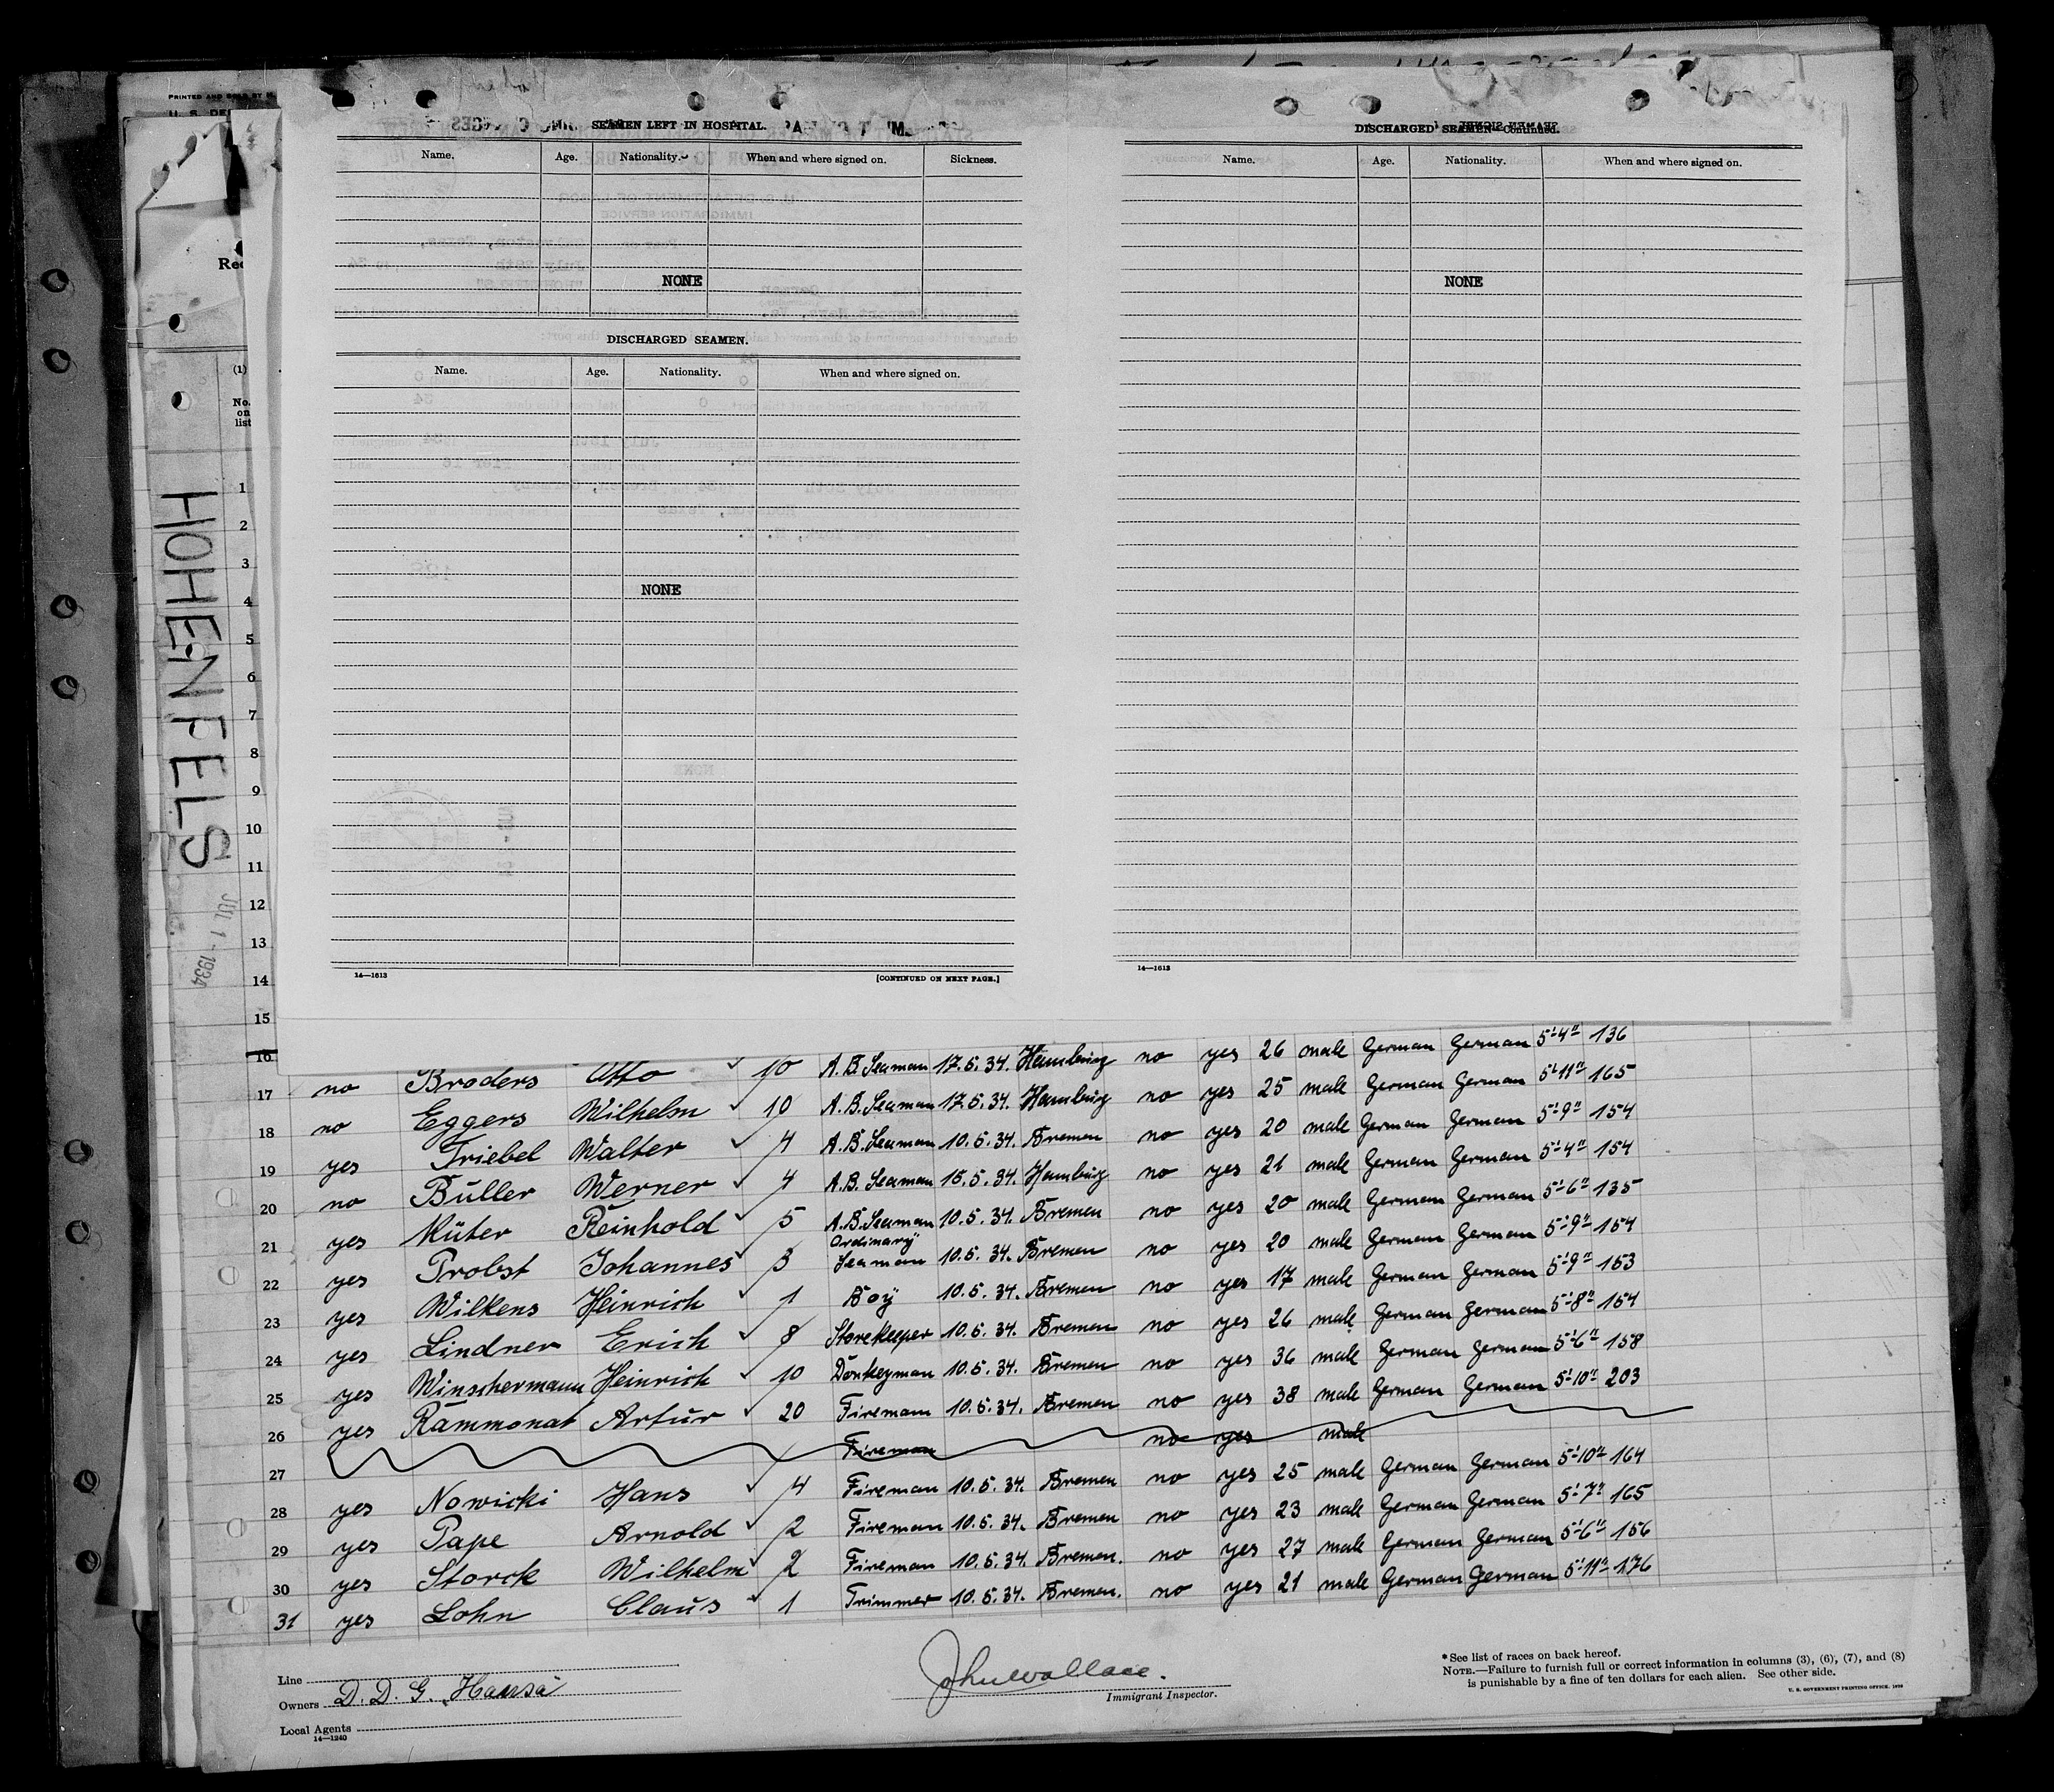 PRINTED AND SOLD BY
U. S. DE
SEAMEN LEFT IN HOSPITAL.
Name. Age. Nationality. When and where signed on. Sickness.
NONE
DISCHARGED SEAMEN.
Name. Age. Nationality. When and where signed on.
NONE
14—1613 [CONTINUED ON NEXT PAGE.]
DISCHARGED SEAMEN—Continued.
Name. Age. Nationality. When and where signed on.
NONE
14—1613
Rec
(1)
No. on list
HOHENFELS
JUL 1 - 1934
1
2
3
4
5
6
7
8
9
10
11
12
13
14
15
16
17 no Broders Otto 10 A.B. Seaman 17.5.34. Hamburg no yes 26 male German German 5'-4" 136
18 no Eggers Wilhelm 10 A.B. Seaman 17.5.34. Hamburg no yes 25 male German German 5'11" 165
19 yes Triebel Walter 4 A.B. Seaman 10.5.34. Bremen no yes 20 male German German 5'-9" 154
20 no Büller Werner 4 A.B. Seaman 15.5.34. Hamburg no yes 21 male German German 5'-4" 154
21 yes Küter Reinhold 5 A.B. Seaman 10.5.34. Bremen no yes 20 male German German 5'-6" 135
22 yes Probst Johannes 3 Ordinary Seaman 10.5.34. Bremen no yes 20 male German German 5'-9" 154
23 yes Wilkens Heinrich 1 Boy 10.5.34. Bremen no yes 17 male German German 5'-9" 153
24 yes Lindner Erich 8 Storekeeper 10.5.34. Bremen no yes 26 male German German 5'-8" 154
25 yes Winschermann Heinrich 10 Donkeyman 10.5.34. Bremen no yes 36 male German German 5'-6" 158
26 yes Rammonat Artur 20 Fireman 10.5.34. Bremen no yes 38 male German German 5'-10" 203
27 Fireman no yes male
28 yes Nowicki Hans 4 Fireman 10.5.34. Bremen no yes 25 male German German 5'-10" 164
29 yes Pape Arnold 2 Fireman 10.5.34. Bremen no yes 23 male German German 5'-7" 165
30 yes Storck Wilhelm 2 Fireman 10.5.34. Bremen. no yes 27 male German German 5'-6" 156
31 yes Lohn Claus 1 Trimmer 10.5.34. Bremen. no yes 21 male German German 5'-11" 176
Line
Owners D. D. G. Hansa
Local Agents
14—1240
John Wallace.
Immigrant Inspector.
* See list of races on back hereof.
NOTE.—Failure to furnish full or correct information in columns (3), (6), (7), and (8)
is punishable by a fine of ten dollars for each alien. See other side.
U. S. GOVERNMENT PRINTING OFFICE: 1928